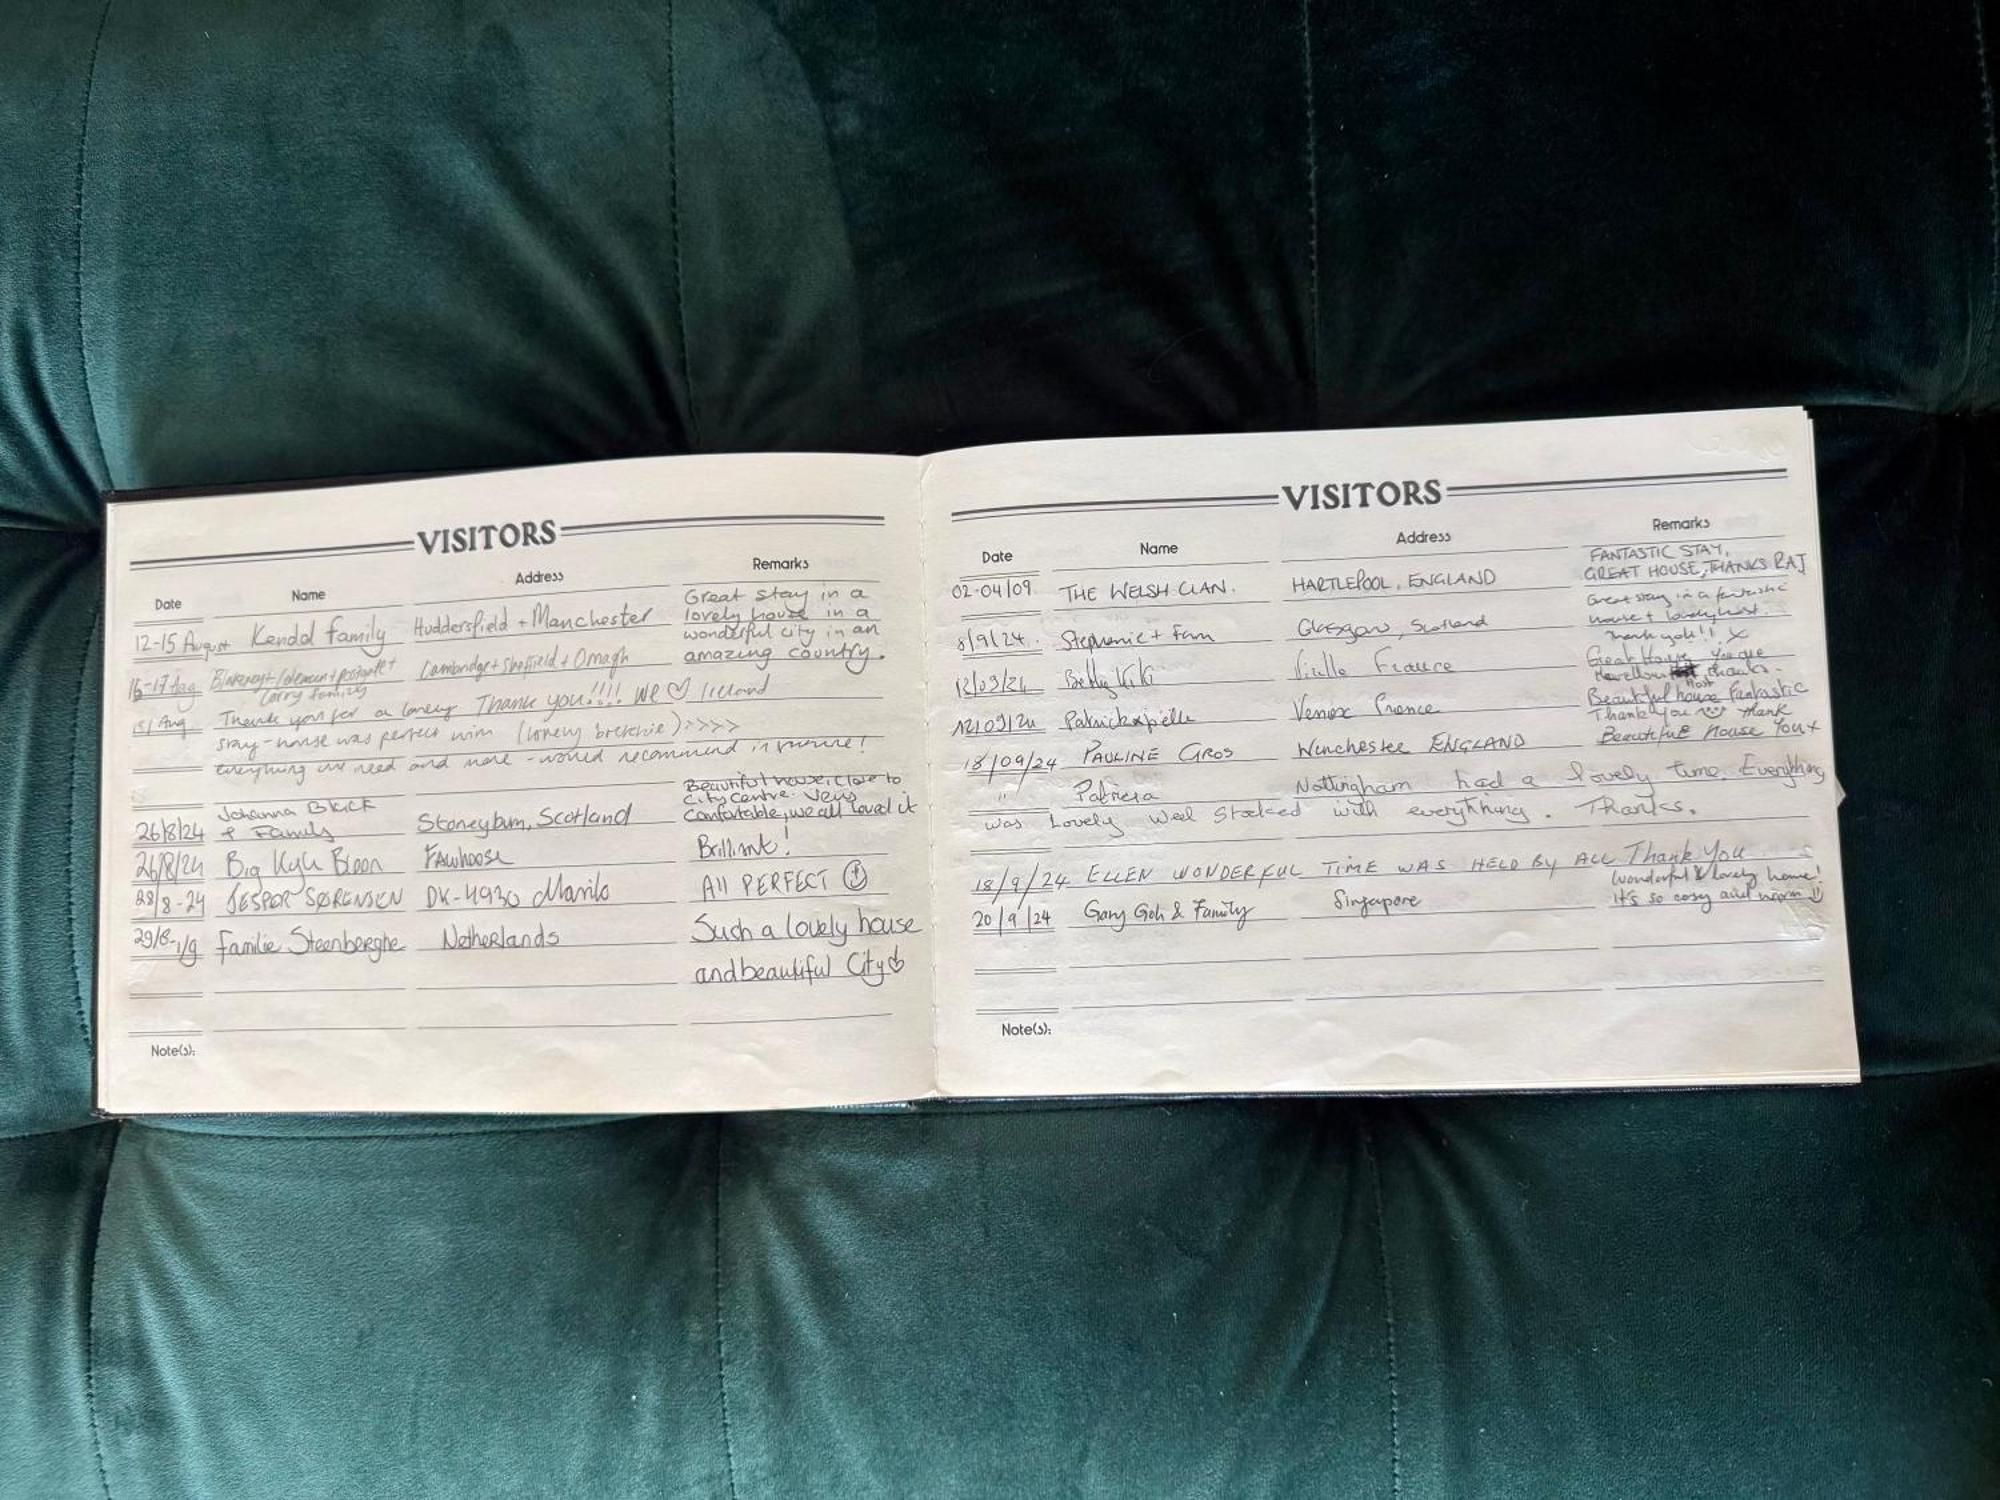 VISITORS
Date Name Address Remarks
Great stay in a
12-15 August Kendal family Huddersfield + Manchester lovely house in a
wonderful city in an
16-17 Aug Cambridge + Sheffield + Omagh amazing country.
Corry family
Thank you for a lovely Thank you!!!! We ♡ Ireland
stay - house was perfect with
everything we need and more - would recommend
Beautiful house, close to
Johanna Black City Centre. Very
26/8/24 & Family Stoneyburn, Scotland Comfortable, we all loved it
26/8/24 Big Kyle Fauhoose Brilliant!
28/8-24 JESPER SØRENSEN DK-4930 Maribo All PERFECT ☺
29/8-1/9 Familie Steenberghe Netherlands Such a lovely house
and beautiful City♡
Note(s):
VISITORS
Date Name Address Remarks
FANTASTIC STAY,
02-04/09 THE WELSH CLAN. HARTLEPOOL, ENGLAND GREAT HOUSE, THANKS RAJ
Great stay in a fantastic
8/9/24. Stephanie + Fam Glasgow, Scotland house + lovely host.
Thank you!! X
12/09/24 Betty France Great House You are
thanks.
Host
12/09/24 Patrick France Beautiful house Fantastic
Thank you ☺ Thank
18/09/24 PAULINE GROS Winchester ENGLAND Beautiful House You x
" Patricia Nottingham had a lovely time. Everything
was Lovely Well Stocked with everything. Thanks.
18/9/24 ELLEN WONDERFUL TIME WAS HELD BY ALL Thank You
Wonderful & lovely home!
20/9/24 Gary Goh & Family Singapore It's so cosy and warm ☺
Note(s):